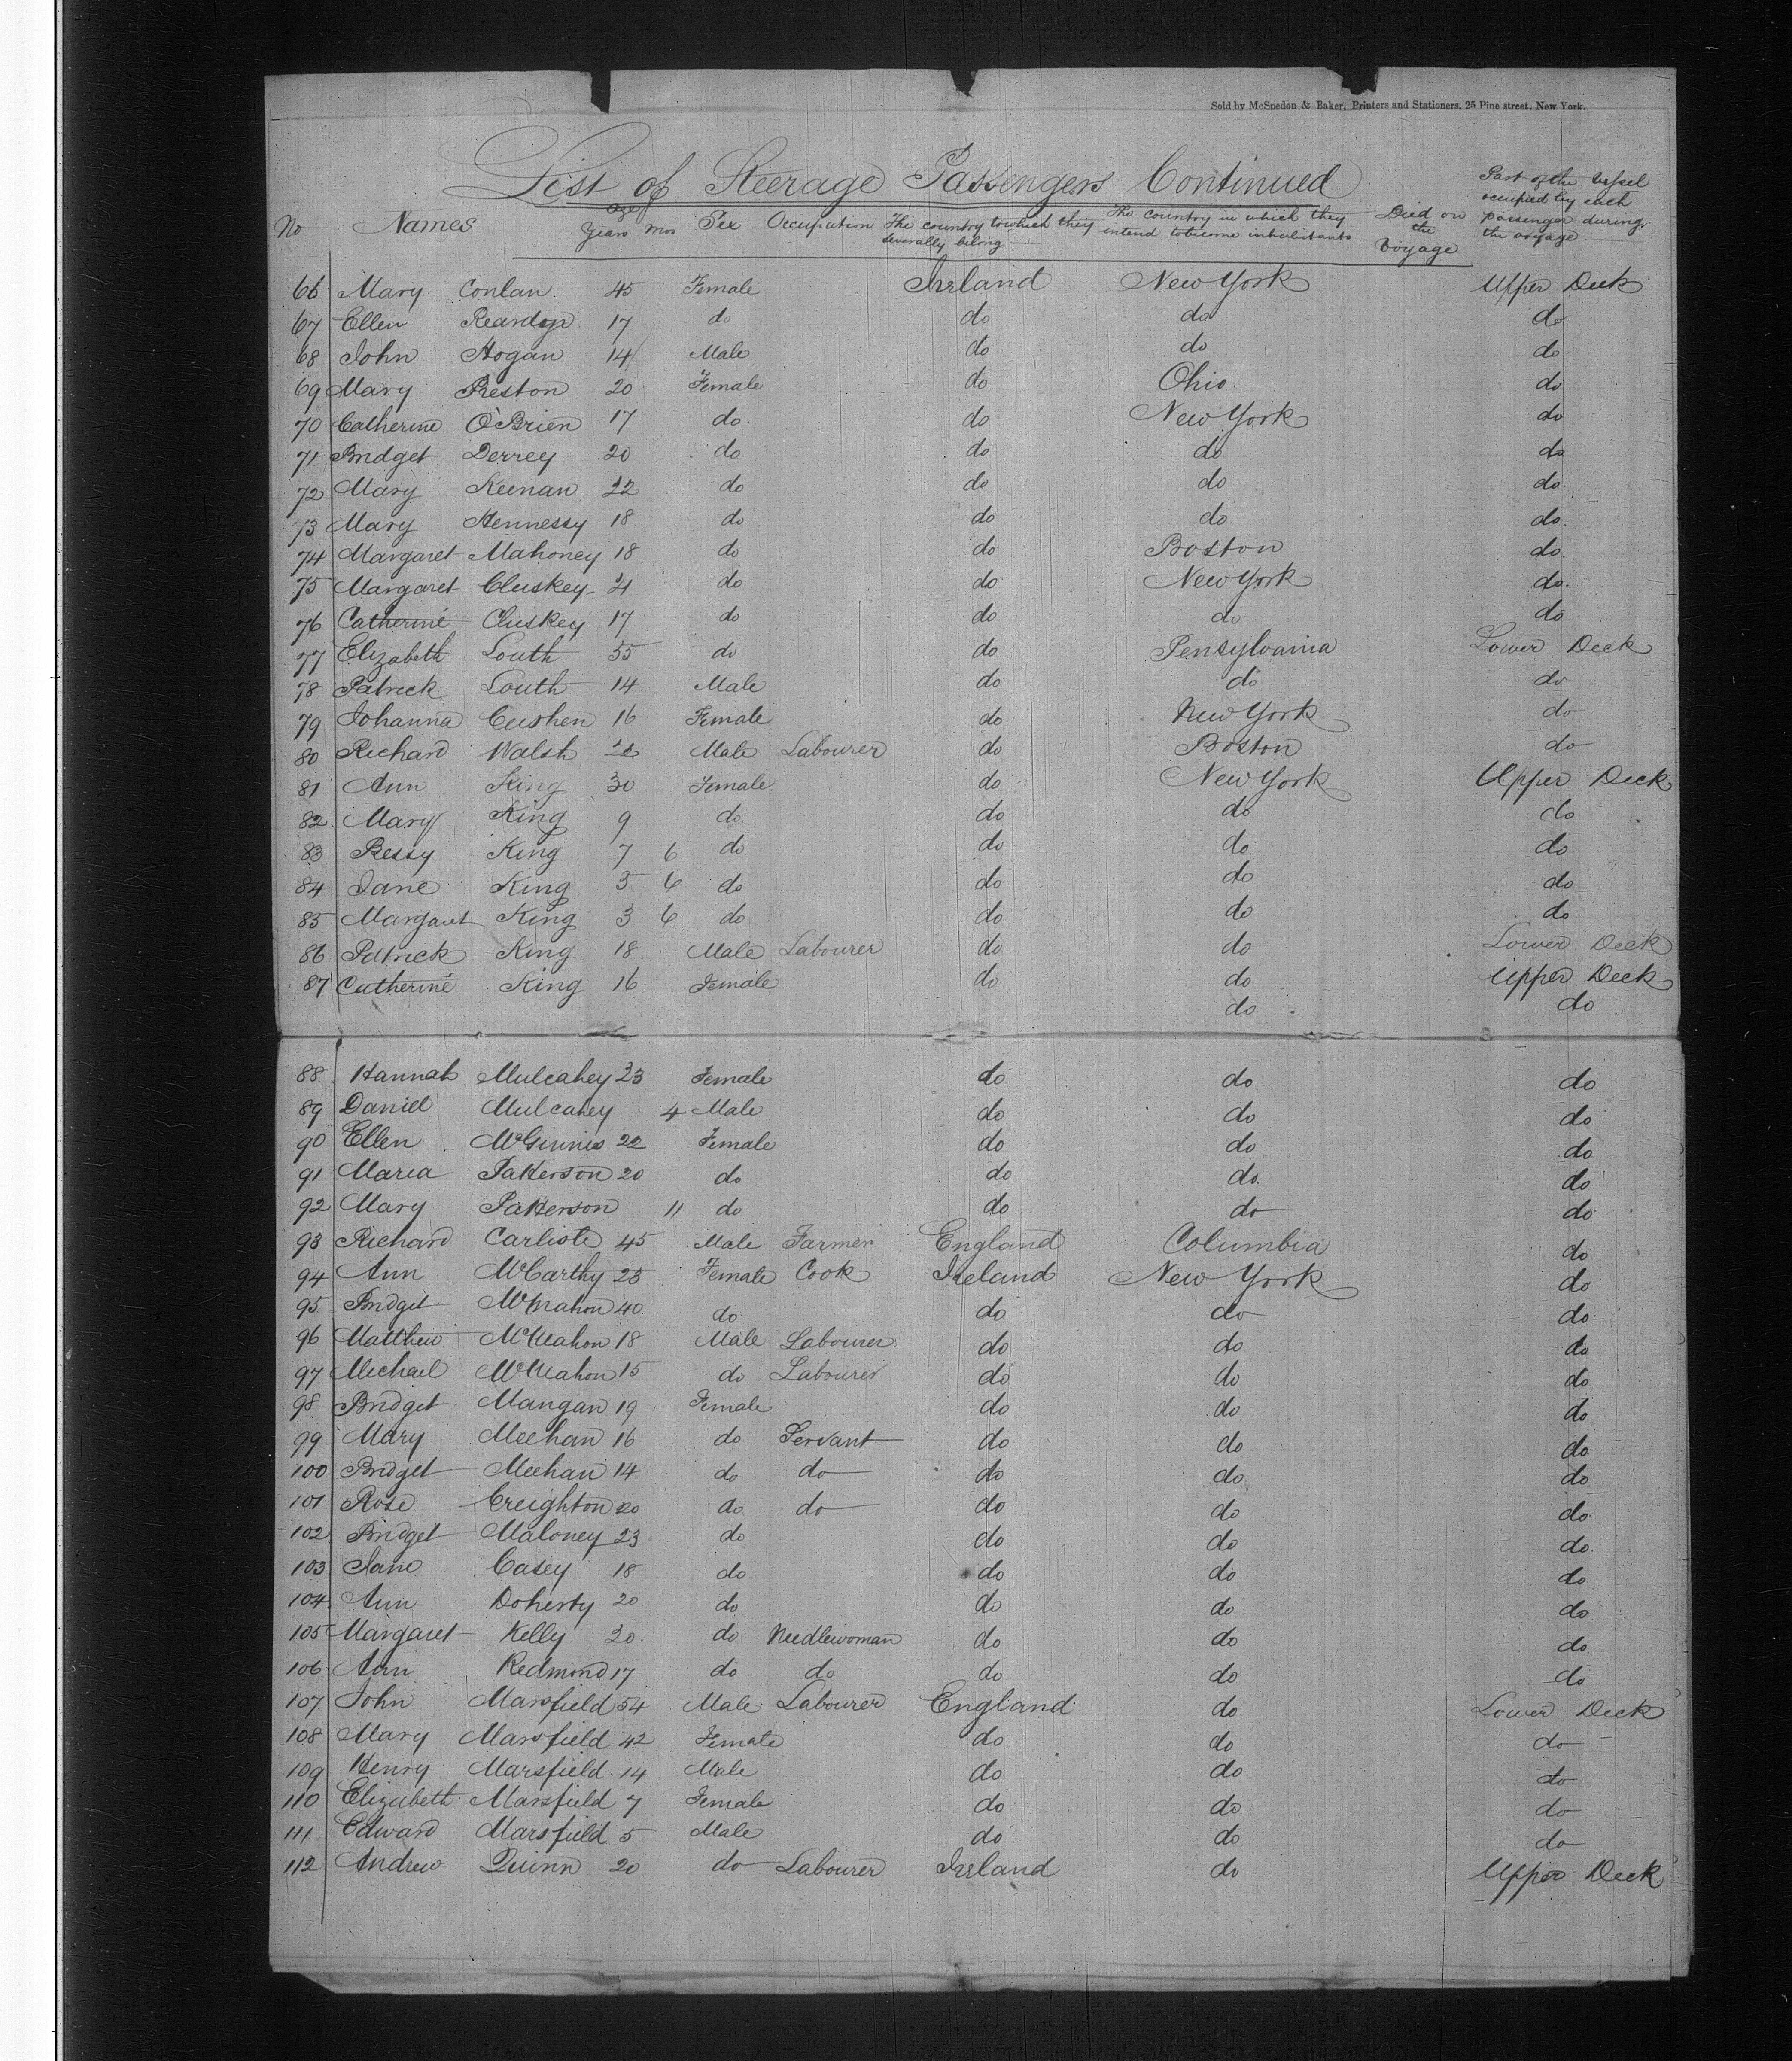 Sold by McSpedon & Baker, Printers and Stationers, 25 Pine street, New York.
List of Steerage Passengers Continued
No Names Age Years Mos Sex Occupation The country to which they severally belong The country in which they intend to become inhabitants Died on the Voyage Part of the Vessel occupied by each passenger during the voyage
66 Mary Conlan 45 Female Ireland New York Upper Deck
67 Ellen Reardon 17 do do do do
68 John Hogan 14 Male do do do
69 Mary Preston 20 Female do Ohio do
70 Catherine O'Brien 17 do do New York do
71 Bridget Derrey 20 do do do do
72 Mary Keenan 22 do do do do
73 Mary Hennessy 18 do do do do
74 Margaret Mahoney 18 do do Boston do
75 Margaret Cluskey 21 do do New York do
76 Catherine Cluskey 17 do do do do
77 Elizabeth Louth 35 do do Pensylvania Lower Deck
78 Patrick Louth 14 Male do do do
79 Johanna Cushen 16 Female do New York do
80 Richard Walsh Male Labourer do Boston do
81 Ann King 30 Female do New York Upper Deck
82 Mary King 9 do do do do
83 Bessy King 7 6 do do do do
84 Jane King 5 6 do do do do
85 Margaret King 3 6 do do do do
86 Patrick King 18 Male Labourer do do Lower Deck
87 Catherine King 16 Female do do Upper Deck
do do
88 Hannah Mulcahey 23 Female do do do
89 Daniel Mulcahey 4 Male do do do
90 Ellen McGinnis 22 Female do do do
91 Maria Patterson 20 do do do do
92 Mary Patterson 11 do do do do
93 Richard Carlisle 45 Male Farmer England Columbia do
94 Ann McCarthy 25 Female Cook Ireland New York do
95 Bridget McMahon 40 do do do do
96 Matthew McMahon 18 Male Labourer do do do
97 Michael McMahon 15 do Labourer do do do
98 Bridget Mangan 19 Female do do do
99 Mary Meehan 16 do Servant do do do
100 Bridget Meehan 14 do do do do do
101 Rose Creighton 20 do do do do do
102 Bridget Maloney 23 do do do do
103 Jane Casey 18 do do do do
104 Ann Doherty 20 do do do do
105 Margaret Kelly 20 do Needlewoman do do do
106 Ann Redmond 17 do do do do do
107 John Marsfield 54 Male Labourer England do Lower Deck
108 Mary Marsfield 42 Female do do do
109 Henry Marsfield 14 Male do do do
110 Elizabeth Marsfield 7 Female do do do
111 Edward Marsfield 5 Male do do do
112 Andrew Quinn 20 do Labourer Ireland do Upper Deck